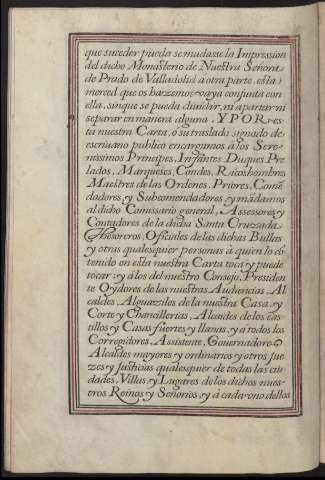 que suceder pueda se mudasse la Impression
del dicho Monasterio de Nuestra Señora
de Prado de Valladolid a otra parte, esta
merced que os hazemos, vaya conjunta con
ella, sin que se pueda diuidir, ni apartar ni
separar en manera alguna. Y POR es-
ta nuestra Carta, ó su traslado signado de
escriuano publico encargamos á los Sere-
nissimos Principes, Infantes Duques Pre
lados, Marqueses, Condes, Ricoshombres
Maestres de las Ordenes, Priores, Comē
dadores, y Subcomendadores, y mādamos
al dicho Comissario general, Assessores, y
Contadores de la dicha Santa Cruzada
Thesoreros, Oficiales de las dichas Bullas
y otras qualesquier personas á quien lo cō
tenido en esta nuestra Carta toca, y puede
tocar, y á los del nuestro Consejo, Presiden
te Oydores de las nuestras Audiencias, Al
caldes, Alguazziles de la nuestra Casa, y
Corte y Chancillerias, Alcaides de los cas-
tillos y Casas fuertes y llanas, y á todos los
Corregidores, Assistente, Gouernadores
Alcaldes mayores y ordinarios y otros jue
zes y Justicias qualesquier de todas las ciu
dades, Villas, y Lugares de los dichos nues-
tros Reinos y Señorios, y á cada vno dellos